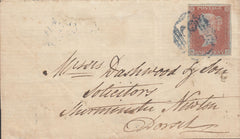 Messrs Dashwood & Son
Solicitors
Sturminster Newton
Dorset